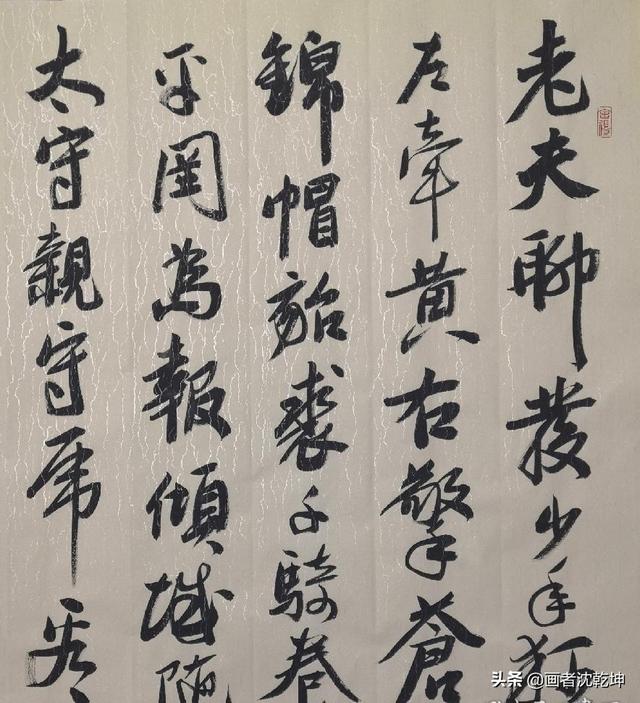 老夫聊發少年狂
左牽黄右擎蒼
錦帽貂裘千騎卷
平岡為報傾城随
太守親守虎
头条 @画者沈乾坤